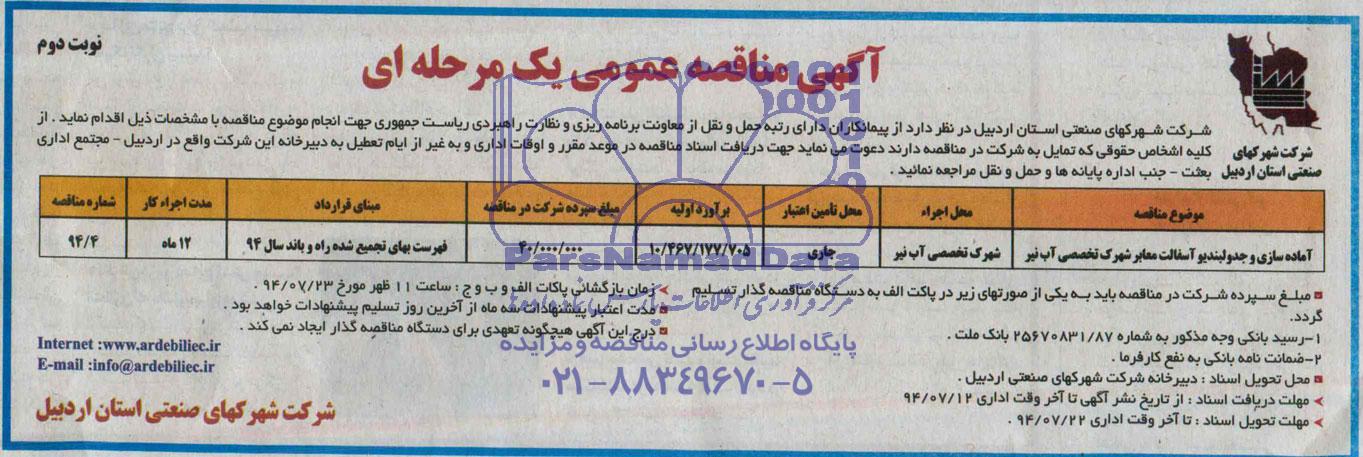 نوبت دوم
آگهی مناقصه عمومی یک مرحله ای
شرکت شهرکهای
صنعتی استان اردبیل
شرکت شهرکهای صنعتی استان اردبیل در نظر دارد از پیمانکاران دارای رتبه حمل و نقل از معاونت برنامه ریزی و نظارت راهبردی ریاست جمهوری جهت انجام موضوع مناقصه با مشخصات ذیل اقدام نماید . از
کلیه اشخاص حقوقی که تمایل به شرکت در مناقصه دارند دعوت می نماید جهت دریافت اسناد مناقصه در موعد مقرر و اوقات اداری و به غیر از ایام تعطیل به دبیرخانه این شرکت واقع در اردبیل - مجتمع اداری
بعثت - جنب اداره پایانه ها و حمل و نقل مراجعه نمائید .
موضوع مناقصه محل اجراء محل تأمین اعتبار برآورد اولیه مبلغ سپرده شرکت در مناقصه مبنای قرارداد مدت اجراء کار شماره مناقصه
آماده سازی و جدولبندیو آسفالت معابر شهرک تخصصی آب نیر شهرک تخصصی آب نیر جاری ۱۰/۴۶۷/۱۷۷/۷۰۵ ۴۰/۰۰۰/۰۰۰ فهرست بهای تجمیع شده راه و باند سال ۹۴ ۱۲ ماه ۹۴/۴
مبلغ سپرده شرکت در مناقصه باید به یکی از صورتهای زیر در پاکت الف به دستگاه مناقصه گذار تسلیم
گردد.
۱-رسید بانکی وجه مذکور به شماره ۲۵۶۷۰۸۳۱/۸۷ بانک ملت .
۲-ضمانت نامه بانکی به نفع کارفرما .
محل تحویل اسناد : دبیرخانه شرکت شهرکهای صنعتی اردبیل .
مهلت دریافت اسناد : از تاریخ نشر آگهی تا آخر وقت اداری ۹۴/۰۷/۱۲
مهلت تحویل اسناد : تا آخر وقت اداری ۹۴/۰۷/۲۲ .
زمان بازگشائی پاکات الف و ب و ج : ساعت ۱۱ ظهر مورخ ۹۴/۰۷/۲۳ .
مدت اعتبار پیشنهادات سه ماه از آخرین روز تسلیم پیشنهادات خواهد بود .
درج این آگهی هیچگونه تعهدی برای دستگاه مناقصه گذار ایجاد نمی کند .
Internet :www.ardebiliec.ir
E-mail :info@ardebiliec.ir
شرکت شهرکهای صنعتی استان اردبیل
ParsNamadData
پایگاه اطلاع رسانی مناقصه و مزایده
۰۲۱-۸۸۳۴۹۶۷۰-۵